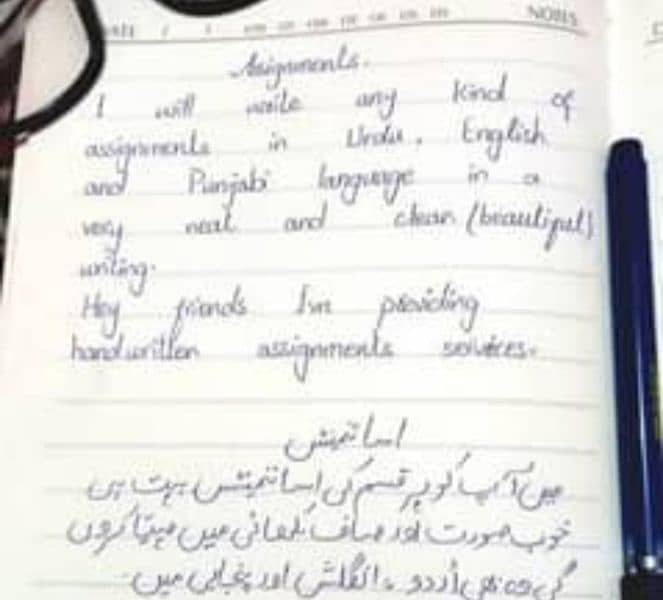 NOTES
Assignments.
I will write any kind of
assignments in Urdu, English
and Punjabi language in a
very neat and clean (beautiful)
writing.
Hey friends I'm providing
handwritten assignments services.
اسائنمنٹس
میں آپ کو ہر قسم کی اسائنمنٹس بہت ہی
خوب صورت اور صاف لکھائی میں مہیا کروں
گی وہ بھی اُردو، انگلش اور پنجابی میں۔